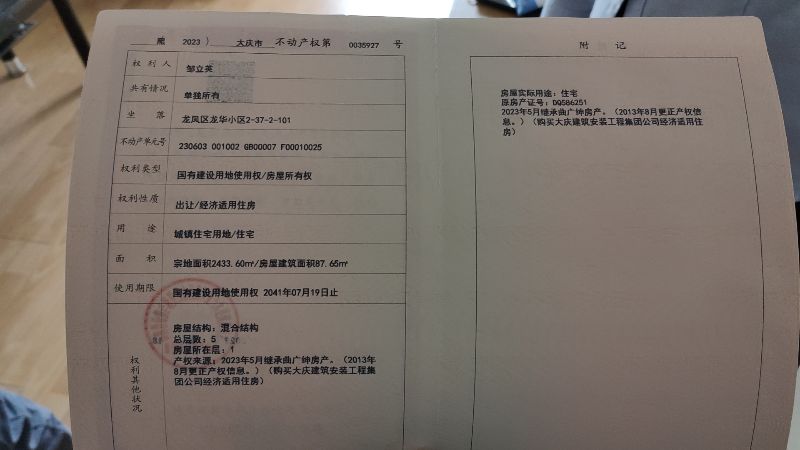 熊 2023 ） 大庆市 不动产权第 0035927 号
权利人 邹立英
共有情况 单独所有
坐落 龙凤区龙华小区2-37-2-101
不动产单元号 230603 001002 GB00007 F00010025
权利类型 国有建设用地使用权/房屋所有权
权利性质 出让/经济适用住房
用途 城镇住宅用地/住宅
面积 宗地面积2433.60㎡/房屋建筑面积87.65㎡
使用期限 国有建设用地使用权 2041年07月19日止
权利其他状况
房屋结构：混合结构
总层数：5
房屋所在层：1
产权来源：2023年5月继承曲广绅房产。（2013年
8月更正产权信息。）（购买大庆建筑安装工程集
团公司经济适用住房）
附 记
房屋实际用途：住宅
原房产证号：DQ586251
2023年5月继承曲广绅房产。（2013年8月更正产权信
息。）（购买大庆建筑安装工程集团公司经济适用住
房）